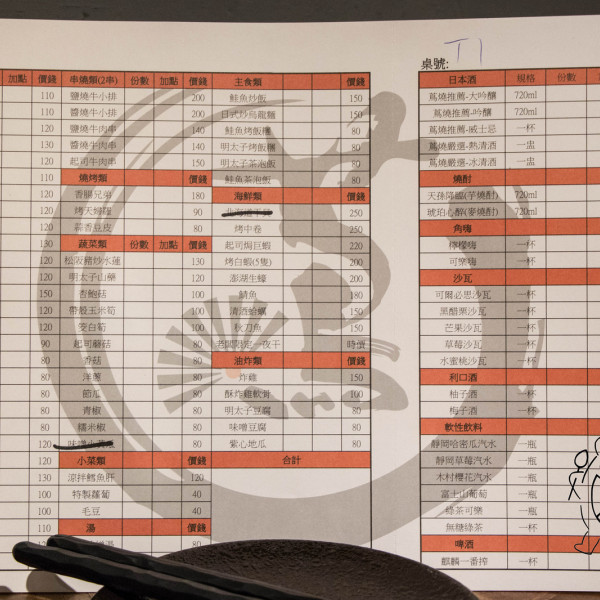 桌號: T1
加點 價錢 串燒類(2串) 份數 加點 價錢 主食類 價錢
110 鹽燒牛小排 200 鮭魚炒飯 150
110 醬燒牛小排 200 日式炒烏龍麵 150
120 鹽燒牛肉串 140 鮭魚烤飯糰 80
130 醬燒牛肉串 140 明太子烤飯糰 80
120 起司牛肉串 150 明太子茶泡飯 80
110 燒烤類 價錢 鮭魚茶泡飯 80
120 香腸兄弟 180 海鮮類 價錢
120 烤天婦羅 90 250
120 蒜香豆皮 80 烤中卷 250
130 蔬菜類 份數 加點 價錢 起司焗巨蝦 220
120 松阪豬炒水蓮 130 烤白蝦(5隻) 200
120 明太子山藥 120 澎湖生蠔 200
150 杏鮑菇 100 鯖魚 180
120 帶殼玉米筍 100 清酒蛤蠣 150
120 茭白筍 100 秋刀魚 150
90 起司蘑菇 80 老闆限定一夜干 時價
80 香菇 80 油炸類 價錢
80 洋蔥 80 炸雞 150
80 節瓜 80 酥炸雞軟骨 100
80 青椒 80 明太子豆腐 80
80 糯米椒 80 味噌豆腐 80
120 80 紫心地瓜 80
120 小菜類 價錢 合計
130 涼拌鱈魚肝 120
100 特製蘿蔔 40
100 毛豆 40
110 湯 價錢
120 80
日本酒 規格 份數
蔦燒推薦-大吟釀 720ml
蔦燒推薦-吟釀 720ml
蔦燒推薦-威士忌 一杯
蔦燒嚴選-熱清酒 一盅
蔦燒嚴選-冰清酒 一盅
燒酎
天孫降臨(芋燒酎) 720ml
琥珀心醉(麥燒酎) 720ml
角嗨
檸檬嗨 一杯
可樂嗨 一杯
沙瓦
可爾必思沙瓦 一杯
黑醋栗沙瓦 一杯
芒果沙瓦 一杯
草莓沙瓦 一杯
水蜜桃沙瓦 一杯
利口酒
柚子酒 一杯
梅子酒 一杯
軟性飲料
靜岡哈密瓜汽水 一瓶
靜岡草莓汽水 一瓶
木村櫻花汽水 一瓶
富士山葡萄 一瓶
綠茶可樂 一瓶
無糖綠茶 一杯
啤酒
麒麟一番搾 一杯